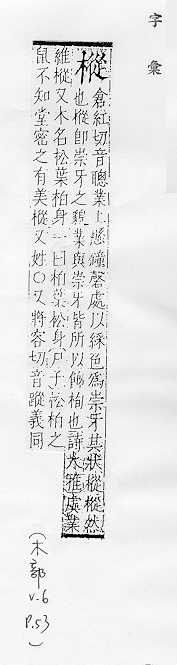 字彙
樅 倉紅切音聰業上懸鐘磬處以綵色爲崇牙其狀樅樅然
也樅卽崇牙之貌業與崇牙皆所以飾栒也詩大雅虡業
維樅又木名松葉柏身一曰柏葉松身尸子松柏之
鼠不知堂密之有美樅又姓〇又將容切音蹤義同
(木部
v.6
P.53
)